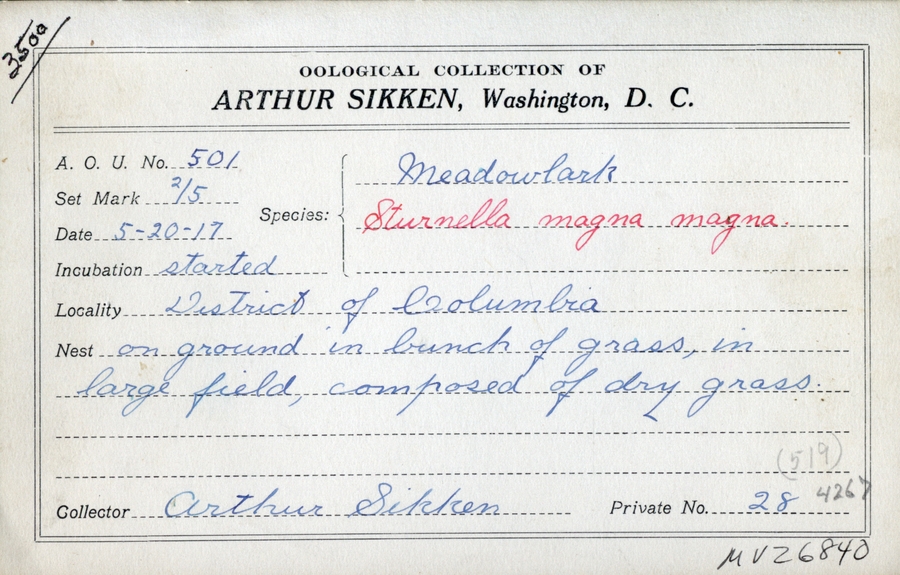 3500
OOLOGICAL COLLECTION OF
ARTHUR SIKKEN, Washington, D. C.
A. O. U. No. 501
Set Mark 2/5
Date 5-20-17
Incubation started
Species: Meadowlark
Sturnella magna magna.
Locality District of Columbia
Nest on ground in bunch of grass, in
large field, composed of dry grass.
(519)
Collector Arthur Sikken Private No. 28 4267
MVZ6840